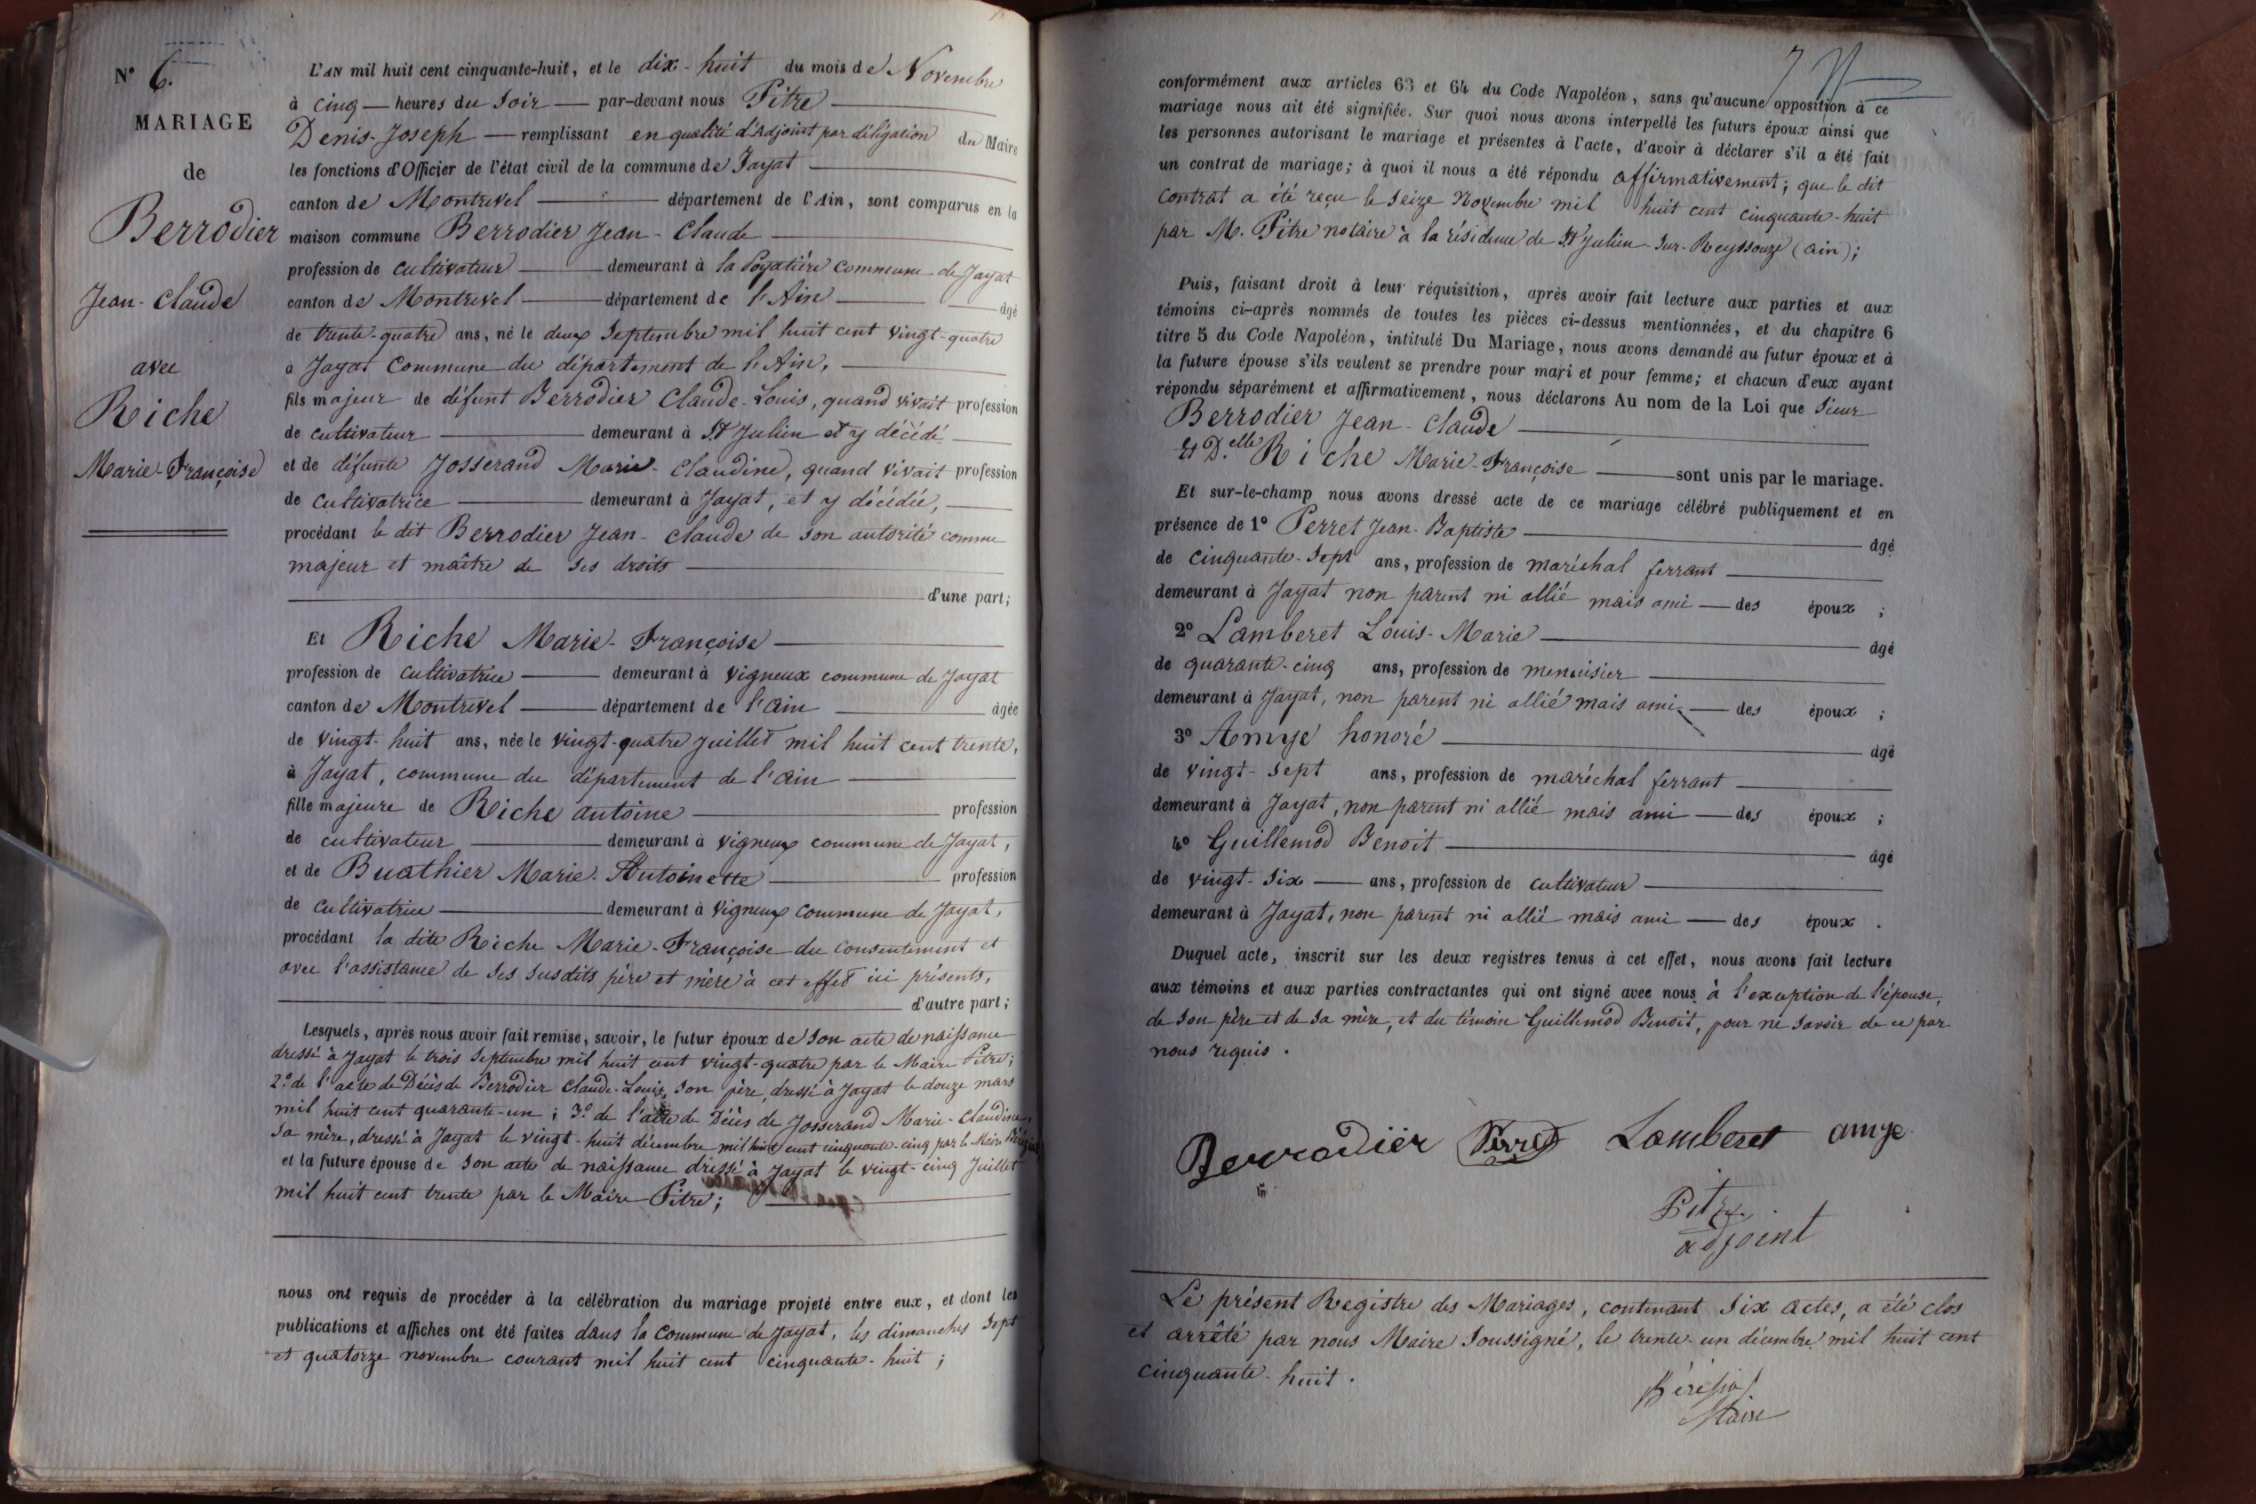 N° 6.
MARIAGE
de
Berrodier
Jean-Claude
avec
Riche
Marie-Françoise
L'AN mil huit cent cinquante-huit, et le dix-huit du mois de Novembre
à cinq heures du soir par-devant nous Pitre
Denis-Joseph remplissant en qualité d'Adjoint par délégation du Maire
les fonctions d'Officier de l'état civil de la commune de Jayat
canton de Montrevel département de l'Ain, sont comparus en la
maison commune Berrodier Jean-Claude
profession de cultivateur demeurant à la Poyatière commune de Jayat
canton de Montrevel département de l'Ain âgé
de trente-quatre ans, né le deux Septembre mil huit cent vingt-quatre
à Jayat commune du département de l'Ain,
fils majeur de défunt Berrodier Claude-Louis, quand vivait profession
de cultivateur demeurant à St Julien et y décédé
et de défunte Josserand Marie-Claudine, quand vivait profession
de cultivatrice demeurant à Jayat, et y décédée,
procédant le dit Berrodier Jean-Claude de son autorité comme
majeur et maître de ses droits
d'une part;
Et Riche Marie-Françoise
profession de cultivatrice demeurant à Vigneux commune de Jayat
canton de Montrevel département de l'Ain âgée
de vingt-huit ans, née le vingt-quatre Juillet mil huit cent trente,
à Jayat, commune du département de l'Ain
fille majeure de Riche antoine profession
de cultivateur demeurant à Vigneux commune de Jayat,
et de Buathier Marie-Antoinette profession
de cultivatrice demeurant à Vigneux commune de Jayat,
procédant la dite Riche Marie-Françoise du consentement et
avec l'assistance de ses susdits père et mère à cet effet ici présents,
d'autre part;
Lesquels, après nous avoir fait remise, savoir, le futur époux de son acte de naissance
dressé à Jayat le trois Septembre mil huit cent vingt-quatre par le Maire Pitre;
2° de l'acte de Décès de Berrodier Claude-Louis, son père, dressé à Jayat le douze mars
mil huit cent quarante-un; 3° de l'acte de Décès de Josserand Marie-Claudine,
sa mère, dressé à Jayat le vingt-huit décembre mil huit cent cinquante-cinq par le Maire
et la future épouse de son acte de naissance dressé à Jayat le vingt-cinq Juillet
mil huit cent trente par le Maire Pitre;
nous ont requis de procéder à la célébration du mariage projeté entre eux, et dont les
publications et affiches ont été faites dans la Commune de Jayat, les dimanches sept
et quatorze novembre courant mil huit cent cinquante-huit;
7
conformément aux articles 63 et 64 du Code Napoléon, sans qu'aucune opposition à ce
mariage nous ait été signifiée. Sur quoi nous avons interpellé les futurs époux ainsi que
les personnes autorisant le mariage et présentes à l'acte, d'avoir à déclarer s'il a été fait
un contrat de mariage; à quoi il nous a été répondu affirmativement; que le dit
contrat a été reçu le seize Novembre mil huit cent cinquante-huit
par M. Pitre notaire à la résidence de St Julien-sur-Reyssouze (ain);
Puis, faisant droit à leur réquisition, après avoir fait lecture aux parties et aux
témoins ci-après nommés de toutes les pièces ci-dessus mentionnées, et du chapitre 6
titre 5 du Code Napoléon, intitulé Du Mariage, nous avons demandé au futur époux et à
la future épouse s'ils veulent se prendre pour mari et pour femme; et chacun d'eux ayant
répondu séparément et affirmativement, nous déclarons Au nom de la Loi que sieur
Berrodier Jean-Claude
Et D.elle Riche Marie-Françoise sont unis par le mariage.
Et sur-le-champ nous avons dressé acte de ce mariage célébré publiquement et en
présence de 1° Perret Jean-Baptiste âgé
de cinquante-sept ans, profession de maréchal ferrant
demeurant à Jayat non parent ni allié mais ami des époux ;
2° Lamberet Louis-Marie âgé
de quarante-cinq ans, profession de menuisier
demeurant à Jayat, non parent ni allié mais ami des époux ;
3° Amye honoré âgé
de vingt-sept ans, profession de maréchal ferrant
demeurant à Jayat, non parent ni allié mais ami des époux ;
4° Guillemod Benoit âgé
de vingt-six ans, profession de cultivateur
demeurant à Jayat, non parent ni allié mais ami des époux .
Duquel acte, inscrit sur les deux registres tenus à cet effet, nous avons fait lecture
aux témoins et aux parties contractantes qui ont signé avec nous à l'exception de l'épouse,
de son père et de sa mère, et du témoin Guillemod Benoit, pour ne savoir de ce par
nous requis.
Berrodier Perret Lamberet amye
Pitre
adjoint
Le présent Registre des Mariages, contenant six actes, a été clos
et arrêté par nous Maire soussigné, le trente-un décembre mil huit cent
cinquante-huit.
Maire